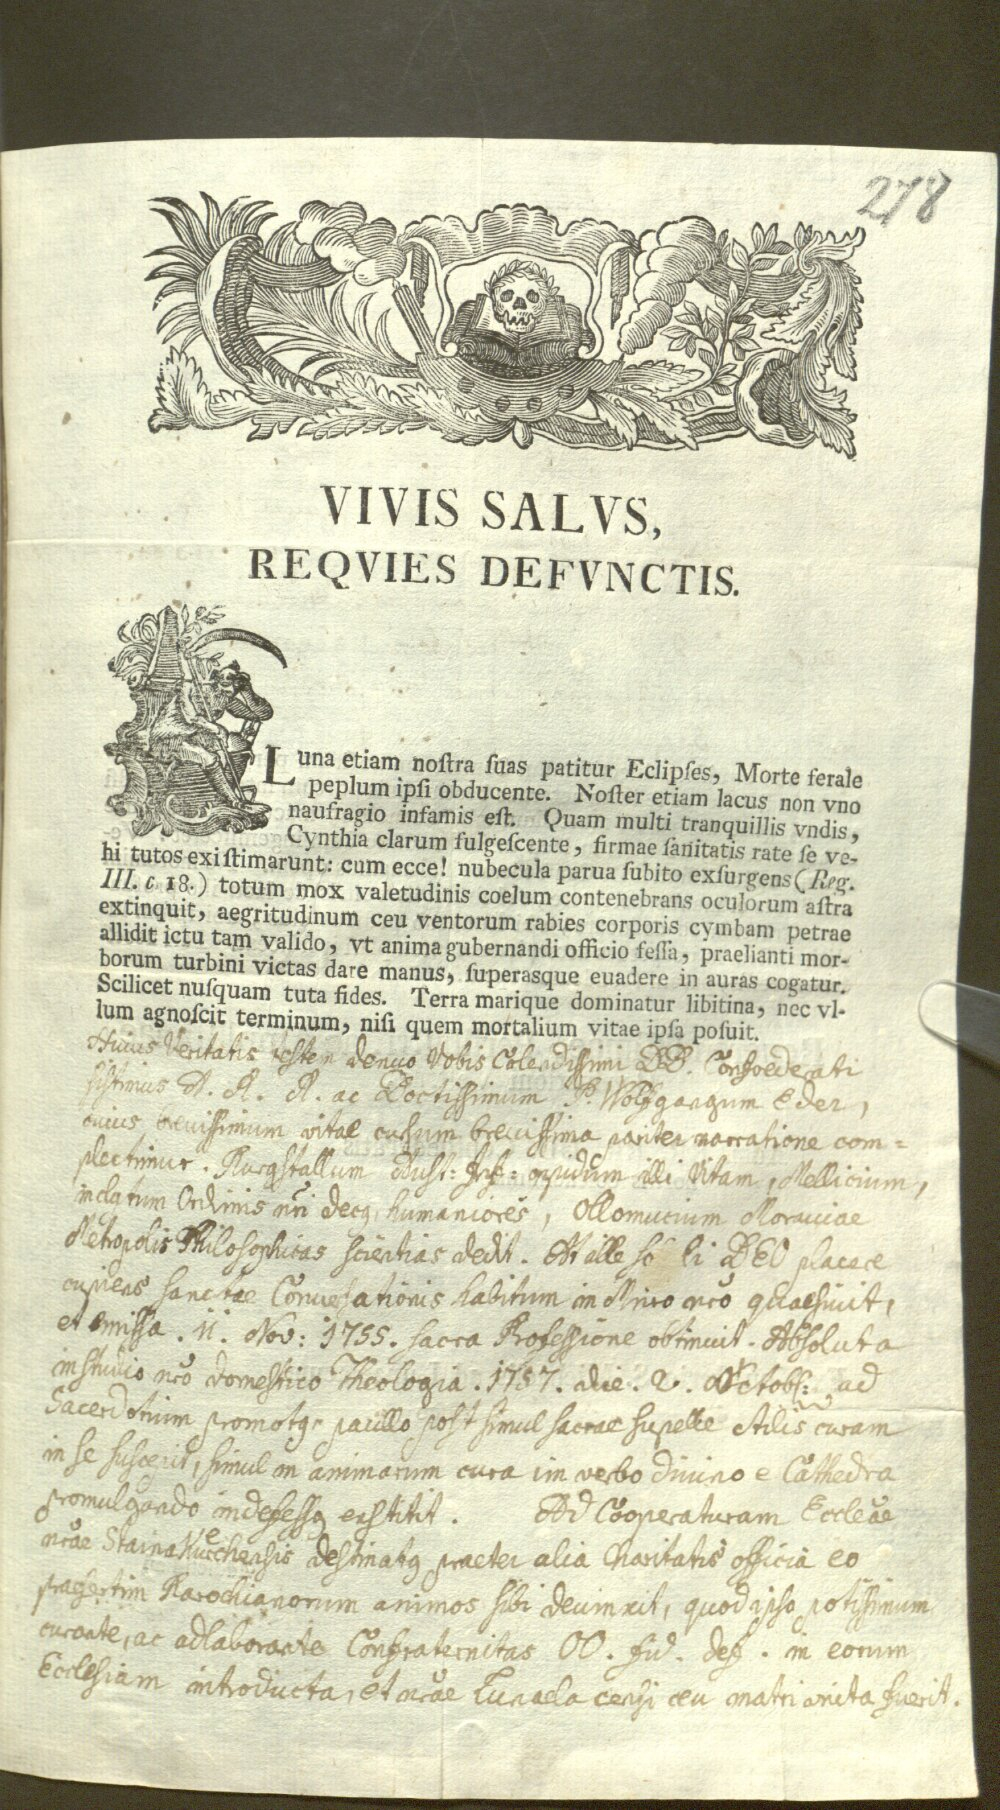 278
VIVIS SALVS,
REQVIES DEFVNCTIS.
Luna etiam noſtra ſuas patitur Eclipſes, Morte ferale
peplum ipſi obducente. Noſter etiam lacus non vno
naufragio infamis eſt. Quam multi tranquillis vndis,
Cynthia clarum fulgeſcente, firmae ſanitatis rate ſe ve-
hi tutos exiſtimarunt: cum ecce! nubecula parua ſubito exſurgens (Reg.
III. c. 18.) totum mox valetudinis coelum contenebrans oculorum aſtra
extinquit, aegritudinum ceu ventorum rabies corporis cymbam petrae
allidit ictu tam valido, vt anima gubernandi officio feſſa, praelianti mor-
borum turbini victas dare manus, ſuperasque euadere in auras cogatur.
Scilicet nuſquam tuta fides. Terra marique dominatur libitina, nec vl-
lum agnoſcit terminum, niſi quem mortalium vitae ipſa poſuit.
Huius Veritatis testem denuo Vobis Colendissimi DD. Confoederati
sistimus A. R. R. ac Doctissimum P. Wolfgangum Eder,
cuius brevissimum vitae cursum brevissima pariter narratione com=
plectimur. Purgstallum Aust: Inf: opidum illi Vitam, Mellicium,
inclytum Ordinis nri decq, humaniores, Ollomucium Moraviae
Metropolis Philosophicas scientias dedit. At ille soli DEO placere
cupiens sanctae Conversationis habitum in Mrio nro quaesivit,
et emissa . 11. Nov: 1755. sacra Professione obtinuit. Absoluta
in studio nro domestico Theologia . 1757. die . 2. Octob: ad
Sacerdotium promotq paullo post simul sacrae supellectilis curam
in se suscepit, simul in animarum cura im verbo divino e Cathedra
promulgando indefessq exstitit. Ad Cooperaturam Eccleae
nrae destinatq praeter alia Charitatis officia eo
praesertim Parochianorum animos sibi devinxit, quod ipso potissimum
curante, ac adlaborante Confraternitas OO. fid. def. in eorum
Ecclesiam introducta, et nrae Lunaela censi ceu matri unita fuerit.